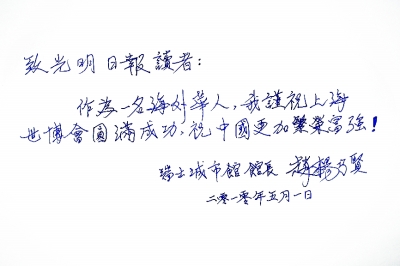 致光明日報讀者：
作為一名海外華人，我謹祝上海
世博會圓滿成功，祝中國更加繁榮富強！
瑞士城市館 館長 乃賢
二零一零年五月一日